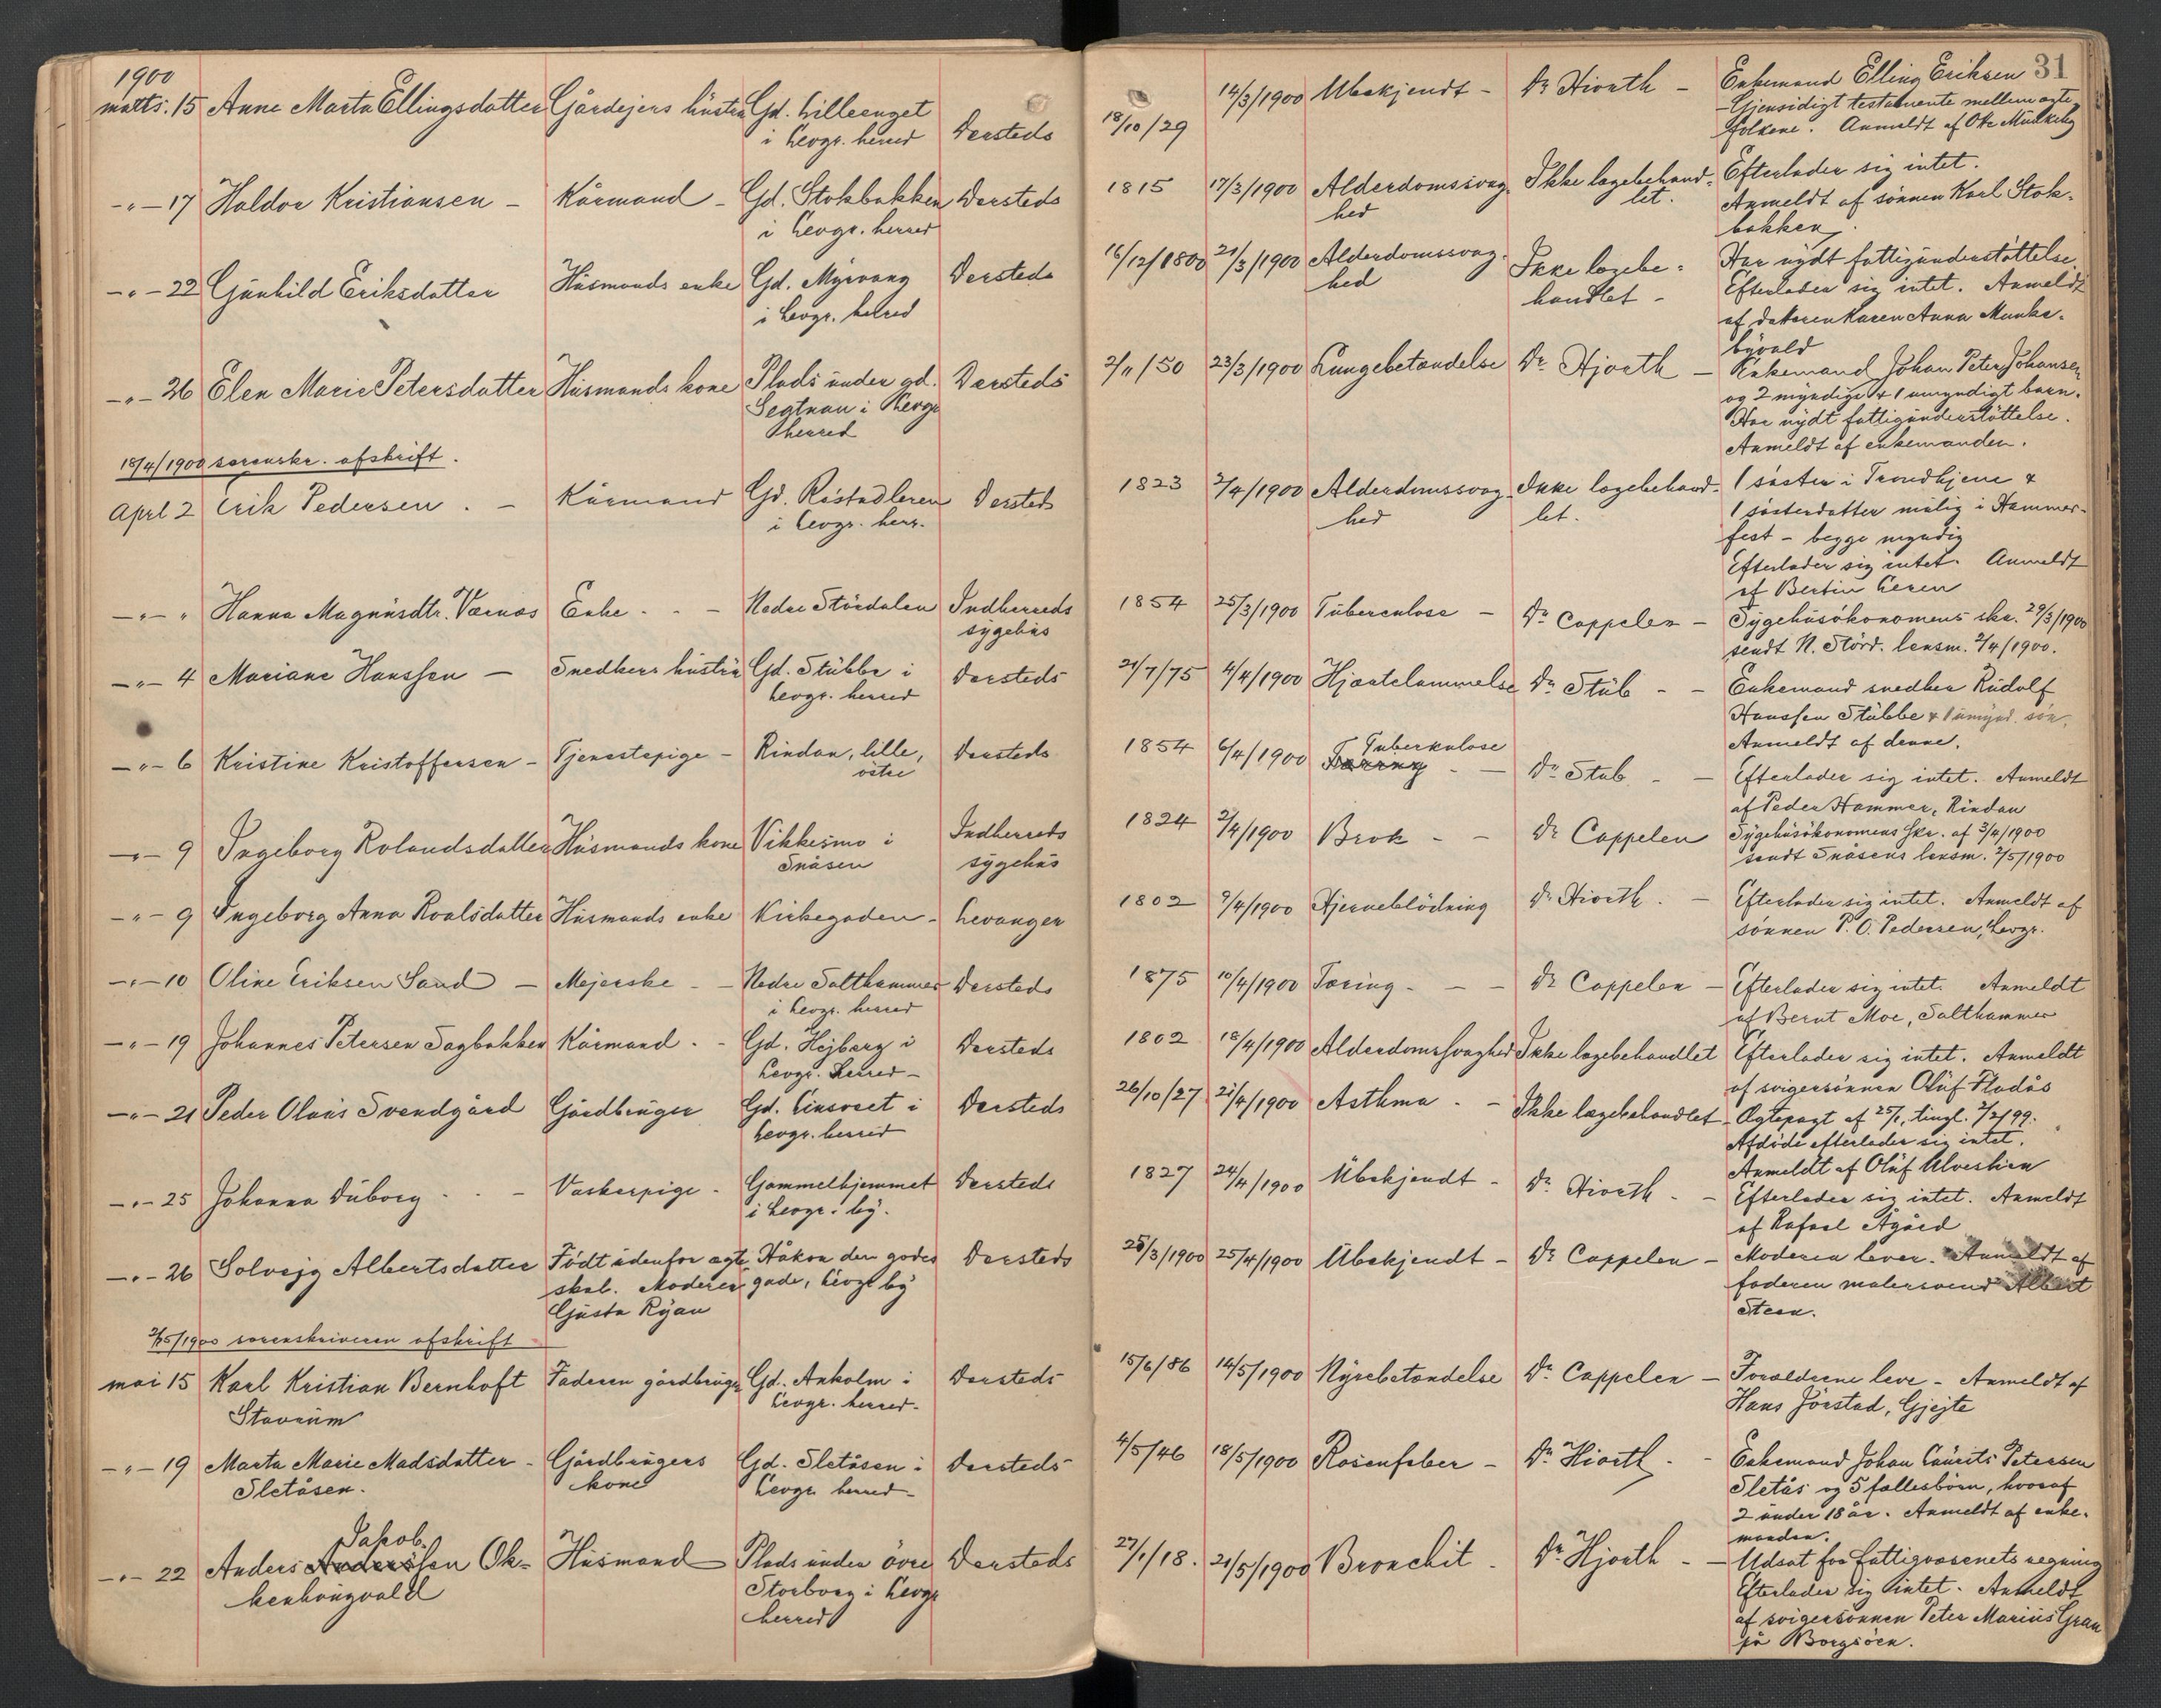 1900
31
marts. 15 Anne Marta Ellingsdatter Gårdejers hustru Gd. Lilleenget Dersteds 18/10/29 14/3/1900 Ubekjendt - Dr Hiorth - Enkemand Elling Eriksen
i Levgr. herred - Gjensidigt testamente mellem ægte
folkene. Anmeldt af Ole Munkeby
-"- 17 Haldor Kristiansen - Kårmand - Gd. Stokbakken Dersteds 1815 17/3/1900 Alderdomssvag- Ikke lægebehand- Efterlader sig intet.
i Levgr. herred hed let. Anmeldt af sønnen Karl Stok-
bakken.
-"- 22 Gunhild Eriksdatter Husmands enke Gd. Myrvang Dersteds 16/12/1800 21/3/1900 Alderdomssvag- Ikke lægebe- Har nydt fattigunderstøttelse
i Levgr. herred hed handlet - Efterlader sig intet. Anmeldt
af datteren Karen Anna Munke-
byvald
-"- 26 Elen Marie Petersdatter Husmands kone Plads under gd. Dersteds 2/11/50 23/3/1900 Lungebetændelse Dr Hjorth - Enkemand Johan Peter Johansen
Segtnan i Levgr og 2 myndige & 1 umyndigt barn.
herred Har nydt fattigunderstøttelse.
Anmeldt af enkemanden.
18/4/1900 sorenskr. afskrift.
Apil 2 Erik Pedersen. - Kårmand Gd. Røstadleren Dersteds 1823 2/4/1900 Alderdomssvag- Ikke lægebehand- 1 søster i Trondhjem &
i Levgr. herr. hed let. 1 søsterdatter målig i Hammer-
fest - begge myndig
Efterlader sig intet. Anmeldt
af Bertin Leren
-"- " Hanna Magnusdtr. Værnæs Enke - - Nedre Stördalen Indherreds 1854 25/3/1900 Tuberculose - Dr Cappelen - Sygehusøkonomens skr. 29/3/1900
sygehus sendt N. Störd. lensm. 2/4/1900.
-"- 4 Mariane Hanssen - Snedkers hustru Gd. Stubbe i Dersteds 21/7/75 4/4/1900 Hjærtelammelse Dr Stub - - Enkemand snedker Rudolf
Levgr. herred Hanssen Stubbe & 1 umynd. søn.
Anmeldt af denne.
-"- 6 Kristine Kristoffersen - Tjenestepige - Rindan, lille, Dersteds 1854 6/4/1900 Tæring Tuberkulose - Dr Stub - - Efterlader sig intet. Anmeldt
østre af Peder Hammer, Rindan
-"- 9 Ingeborg Rolandsdatter Husmands kone Vikkesmo i Indherreds 1824 2/4/1900 Brok - - Dr Cappelen Sygehusøkonomens skr. af 3/4/1900
Snåsen sygehus sendt Snåsens lensm. 2/5/1900
-"- 9 Ingeborg Anna Roalsdatter Husmands enke Kirkegaden - Levanger 1802 9/4/1900 Hjerneblödning Dr Hiorth. - Efterlader sig intet. Anmeldt af
sønnen P. O. Pedersen, Levgr.
-"- 10 Oline Eriksen Sand - Mejerske - - Nedre Salthammer Dersteds 1875 10/4/1900 Tæring - - - Dr Cappelen - Efterlader sig intet. Anmeldt
i Levgr. herred af Bernt Moe, Salthammer
-"- 19 Johannes Petersen Sagbakken Kårmand - - Gd. Hejberg i Dersteds 1802 18/4/1900 Alderdomssvaghed Ikke lægebehandlet Efterlader sig intet. Anmeldt
Levgr. herred - af svigersønnen Oluf Fladås
-"- 21 Peder Olaus Svendgård Gårdbruger Gd. Einsvset i Dersteds 26/10/27 21/4/1900 Asthma - - Ikke lægebehandlet - Ægtepagt af 25/1, tingl. 2/2/99.
Levgr. herred Afdøde efterlader sig intet.
Anmeldt af Oluf Alvestien
-"- 25 Johanna Duborg - - Vaskerpige - Gammelhjemmet Dersteds 1827 24/4/1900 Ubekjendt - Dr Hiorth - - Efterlader sig intet. Anmeldt
i Levgr. by. af Rafael Ågård
-"- 26 Solvejg Albertsdatter Født udenfor ægte- Håkon den godes Dersteds 28/3/1900 25/4/1900 Ubekjendt - Dr Cappelen - Moderen lever. Anmeldt af
skab. Moderen gade, Levgr by faderen malersvend Albert
Gusta Ryan Steen.
2/5/1900 sorenskriveren afskrift
mai 15 Karl Kristian Bernhoft Faderen gårdbruger Gd. Ankolm i Dersteds 15/6/86 14/5/1900 Nyrebetændelse Dr Cappelen - Forældrene leve - Anmeldt af
Stavrum Levgr. herred - Hans Jörstad, Gjejte
-"- 19 Marta Marie Madsdatter - Gårdbrugers Gd. Sletåsen i Dersteds 4/5/46 18/5/1900 Rosenfeber - Dr Hiorth - - Enkemand Johan Laurits Petersen
Sletåsen. kone Levgr herred - Sletås og 5 fællesbörn, hvoraf
2 under 18 år. Anmeldt af enke-
manden.
-"- 22 Anders Anderssen Jakob. Ok- Husmand Plads under övre Dersteds 27/1/18. 21/5/1900 Bronchit - Dr Hjorth - - Udsat for fattigvæsenets regning
kenhaugvald Storborg i Levgr Efterlader sig intet. Anmeldt
herred af svigersønnen Peter Marius Gran
på Borgsöen.